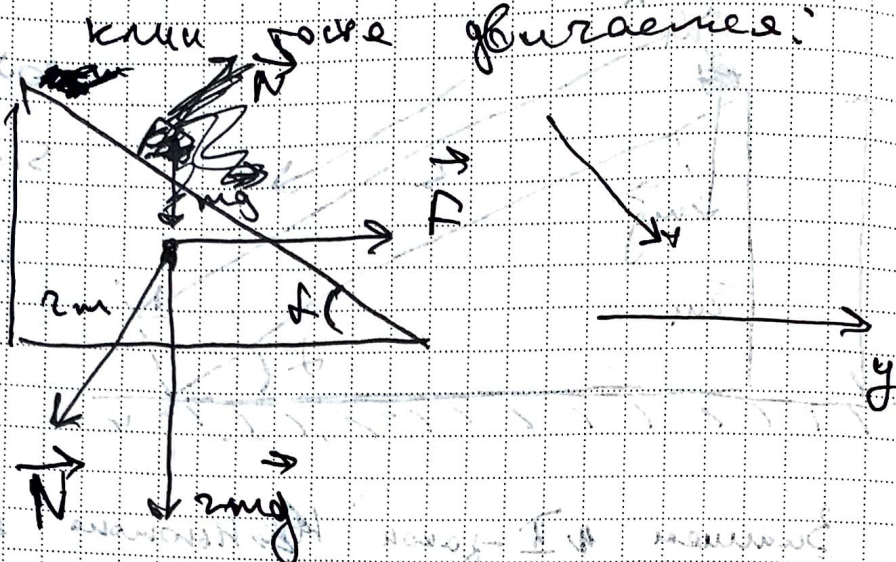 клин тоже двигается:
N
mg
2m
α
y
N
2mg